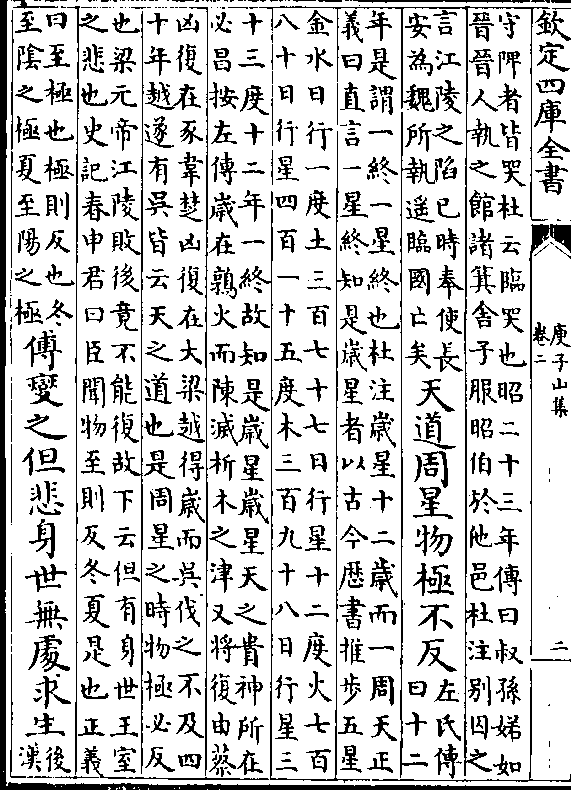 欽定四庫全書
庾子山集
卷二
二
守陴者皆哭杜云臨哭也昭二十三年傳曰叔孫婼如
晉晉人執之館諸箕舍子服昭伯於他邑杜注別囚之
言江陵之陷已時奉使長
安為魏所執遥臨國亡矣
天道周星物極不反
左氏傳
曰十二
年是謂一終一星終也杜注歲星十二歲而一周天正
義曰直言一星終知是歲星者以古今歷書推步五星
金水日行一度土三百七十七日行星十二度火七百
八十日行星四百一十五度木三百九十八日行星三
十三度十二年一終故知是歲星歲星天之貴神所在
必昌按左傳歲在鶉火而陳滅析木之津又將復由蔡
凶復在豕韋楚凶復在大梁越得歲而吳伐之不及四
十年越遂有吳皆云天之道也是周星之時物極必反
也梁元帝江陵敗後竟不能復故下云但有身世王室
之悲也史記春申君曰臣聞物至則反冬夏是也正義
曰至極也極則反也冬
至陰之極夏至陽之極
傅燮之但悲身世無處求生
後
漢